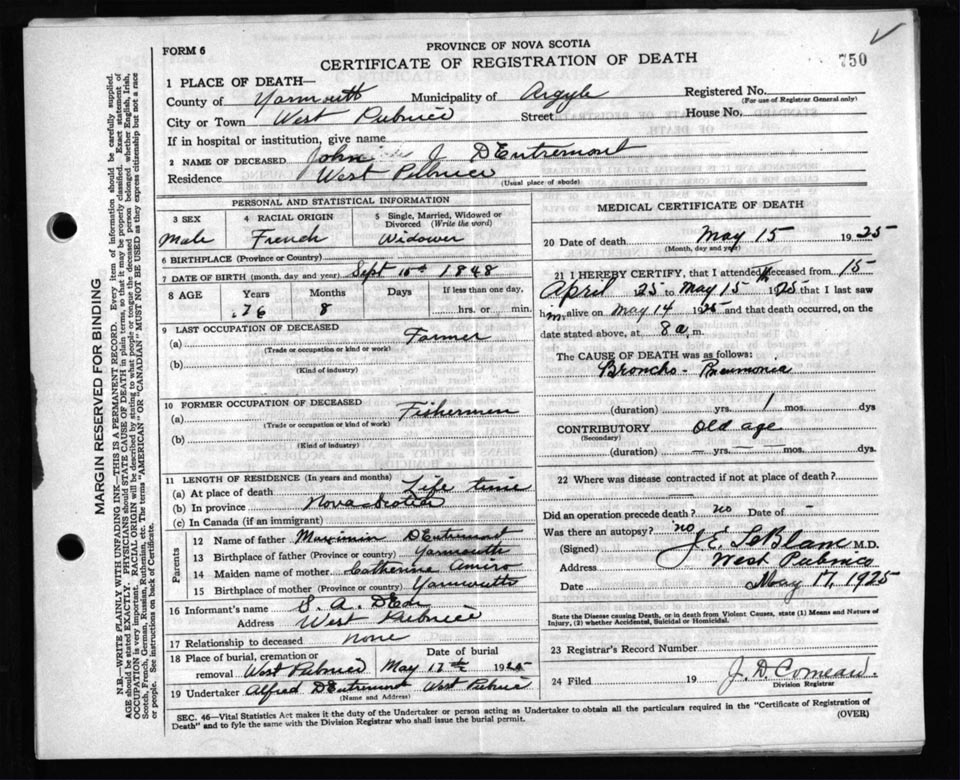 FORM 6
PROVINCE OF NOVA SCOTIA
CERTIFICATE OF REGISTRATION OF DEATH
750
1 PLACE OF DEATH—
County of Yarmouth Municipality of Argyle Registered No.
(For use of Registrar General only)
City or Town West Pubnico Street House No.
If in hospital or institution, give name
2 NAME OF DECEASED John J D'Entremont
Residence West Pubnico
(Usual place of abode)
PERSONAL AND STATISTICAL INFORMATION
3 SEX 4 RACIAL ORIGIN 5 Single, Married, Widowed or Divorced (Write the word)
Male French Widower
6 BIRTHPLACE (Province or Country)
7 DATE OF BIRTH (month, day and year) Sept 15th 1848
8 AGE Years Months Days If less than one day,
76 8 hrs. or min.
9 LAST OCCUPATION OF DECEASED
(a) Farmer
(Trade or occupation or kind or work)
(b)
(Kind of industry)
10 FORMER OCCUPATION OF DECEASED
(a) Fishermen
(Trade or occupation or kind of work)
(b)
(Kind of industry)
11 LENGTH OF RESIDENCE (In years and months)
(a) At place of death Life time
(b) In province Nova Scotia
(c) In Canada (if an immigrant)
Parents
12 Name of father Maximin D'Entremont
13 Birthplace of father (Province or country) Yarmouth
14 Maiden name of mother Catherine Amiro
15 Birthplace of mother (Province or country) Yarmouth
16 Informant's name S. A. D'Ent
Address West Pubnico
17 Relationship to deceased none
18 Place of burial, cremation or removal West Pubnico Date of burial May 17th 1925
19 Undertaker Alfred D'Entremont West Pubnico
(Name and Address)
MEDICAL CERTIFICATE OF DEATH
20 Date of death May 15 1925
(Month, day and year)
21 I HEREBY CERTIFY, that I attended deceased from 15
April 25 to May 15 1925 that I last saw
him alive on May 14 1925 and that death occurred, on the
date stated above, at 8 a, m.
The CAUSE OF DEATH was as follows:
Broncho-Pneumonia
(duration) yrs. 1 mos. dys
CONTRIBUTORY Old age
(Secondary)
(duration) — yrs. — mos. dys.
22 Where was disease contracted if not at place of death?
—
Did an operation precede death? no Date of –
Was there an autopsy? no
(Signed) J. E. LeBlanc M.D.
Address West Pubnico
Date May 17, 1925
State the Disease causing Death, or in death from Violent Causes, state (1) Means and Nature of Injury, (2) whether Accidental, Suicidal or Homicidal.
23 Registrar's Record Number
24 Filed 19 J. D. Comeau.
Division Registrar
SEC. 46—Vital Statistics Act makes it the duty of the Undertaker or person acting as Undertaker to obtain all the particulars required in the "Certificate of Registration of
Death" and to fyle the same with the Division Registrar who shall issue the burial permit.
(OVER)
MARGIN RESERVED FOR BINDING
N.B.—WRITE PLAINLY WITH UNFADING INK—THIS IS A PERMANENT RECORD. Every item of information should be carefully supplied.
AGE should be stated EXACTLY. PHYSICIANS should STATE CAUSE OF DEATH in plain terms, so that it may be properly classified. Exact statement of
OCCUPATION is very important. RACIAL ORIGIN will be described by stating to what people or tongue the deceased person belonged, whether English, Irish,
Scotch, French, German, Russian, Ruthenian, etc. The terms "AMERICAN" OR "CANADIAN" MUST NOT BE USED as they express citizenship but not a race
or people. See instructions on back of Certificate.